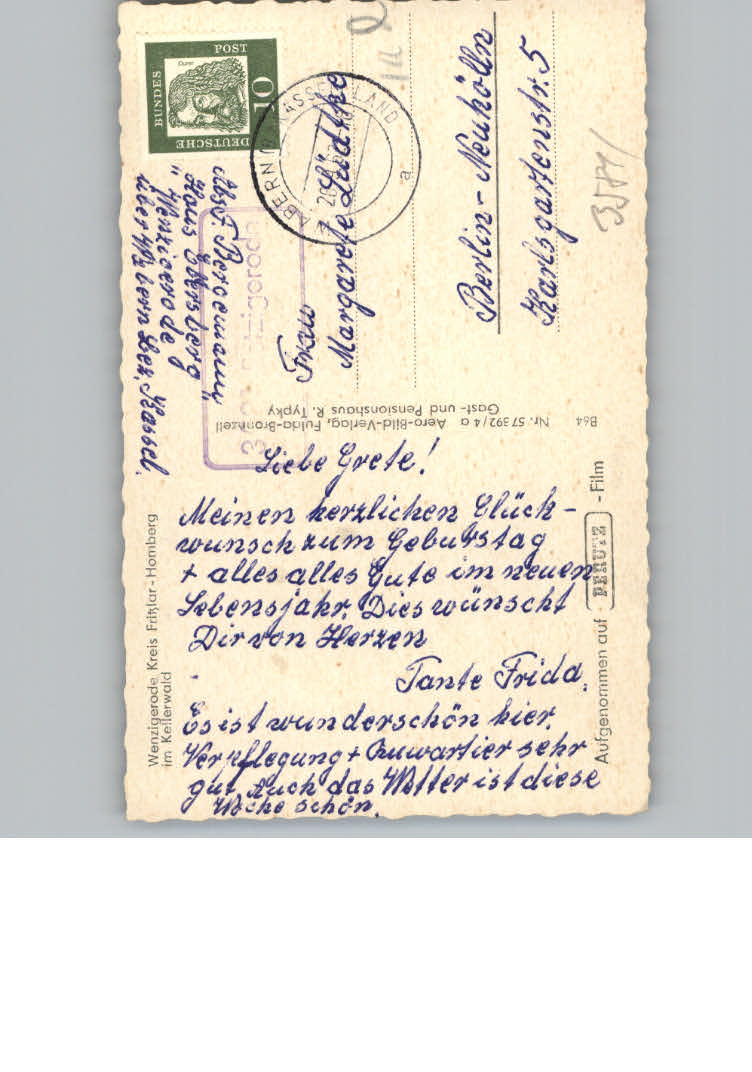 Liebe Grete!
Meinen herzlichen Glück-
wunsch zum Geburtstag
+ alles alles Gute im neuen
Lebensjahr. Dies wünscht
Dir von Herzen
Tante Frida.
Es ist wunderschön hier.
Verpflegung + Quwartier sehr
gut, auch das Wetter ist diese
Woche schön.
Wenzigerode Kreis Fritzlar-Homberg
im Kellerwald
Aufgenommen auf PERUTZ - Film
B64 Nr. 57 392/4 a Aero-Bild-Verlag, Fulda-Bronnzell
Gast- und Pensionshaus R. Typky
Frau
Margarete Lüdtke
Berlin-Neukölln
Karlsgartenstr. 5
Abs. F.
Haus
Wenzigerode
über Zabern Bez. Kassel.
DEUTSCHE
BUNDES
POST
10
Dürer
ZABERN KASSEL LAND
a